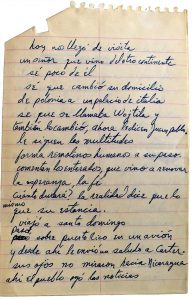 hoy nos llegó de visita
un señor que vino del otro continente
sé poco de él
sé que cambió su domicilio
de polonia a un palacio de italia
sé que se llamaba Wojtila y
también lo cambió, ahora le dicen juan pablo
le siguen las multitudes
forma remolinos humanos a su paso
comentan los enterados que vino a renovar
la esperanza, la fe
cuánto durará? la realidad dice que lo
mismo
que su estancia.
viajó a santo domingo
Pasó
sobre puerto rico en un avión
y desde ahí le envió un saludo a Carter
sus ojos no miraron hacia Nicaragua
ahí el pueblo era las noticias